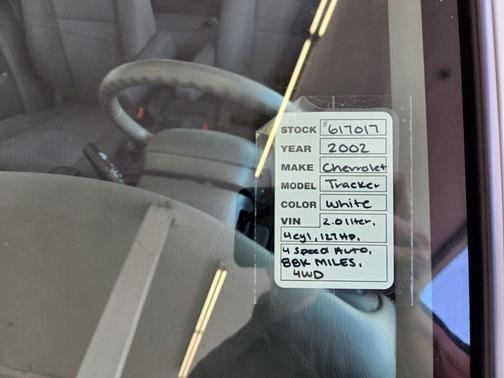 STOCK #617017
YEAR 2002
MAKE Chevrolet
MODEL Tracker
COLOR White
VIN 2.0 liter,
4cyl, 127 HP,
4 Speed Auto,
88K MILES,
4WD